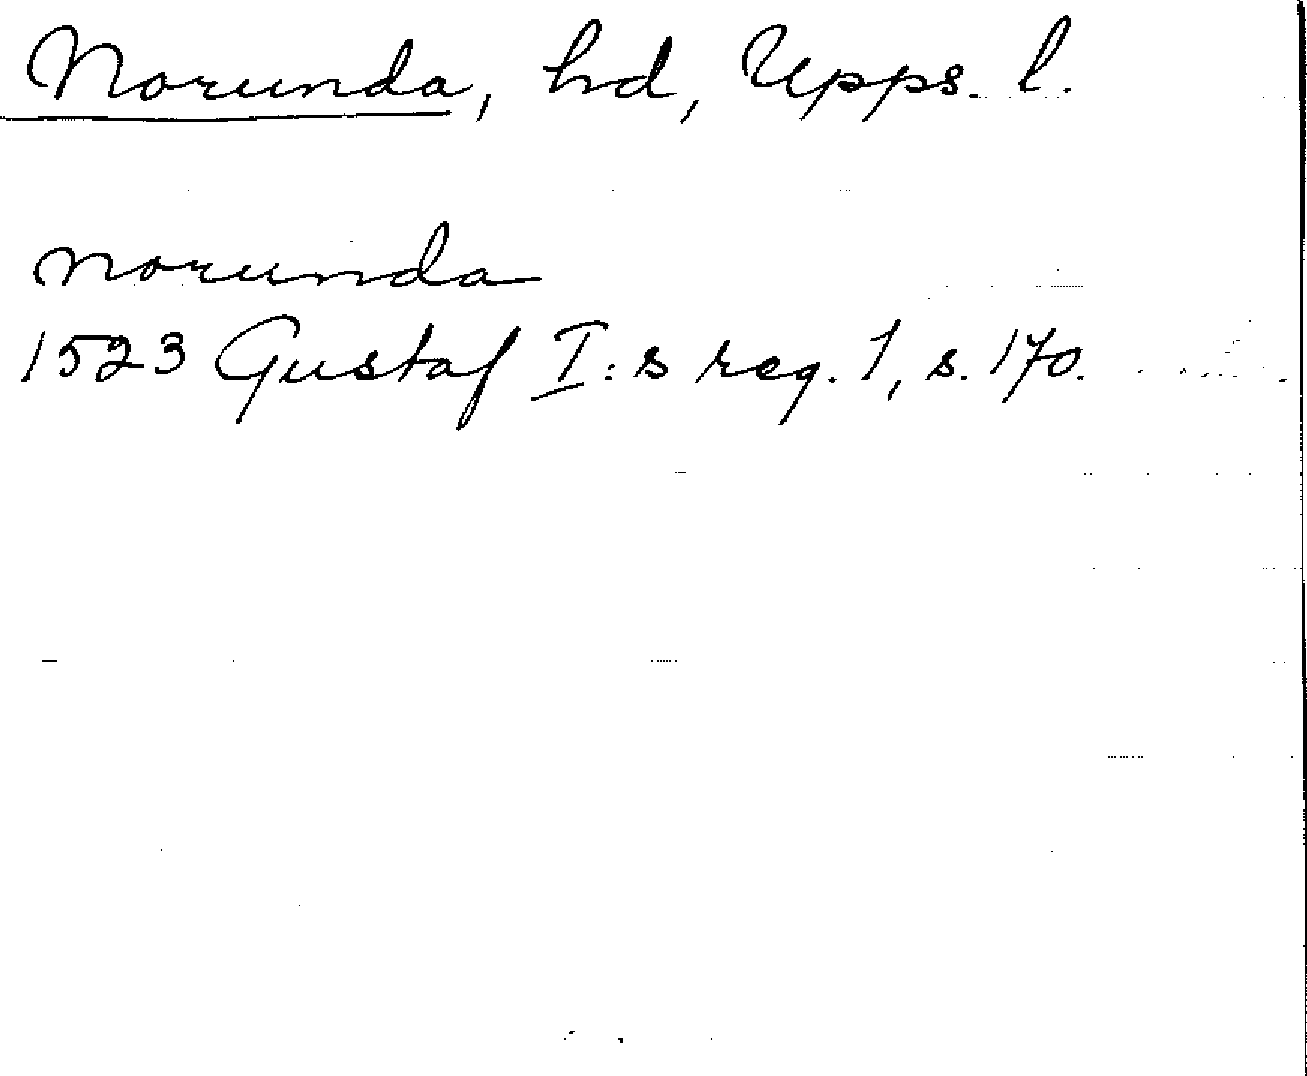 Norunda, hd, Upps. l.
norunda
1523 Gustaf I:s reg. 1, s. 170.